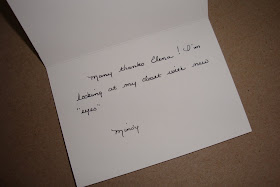 Many thanks Elena! I'm
looking at my dust with new
"eyes"
Mindy